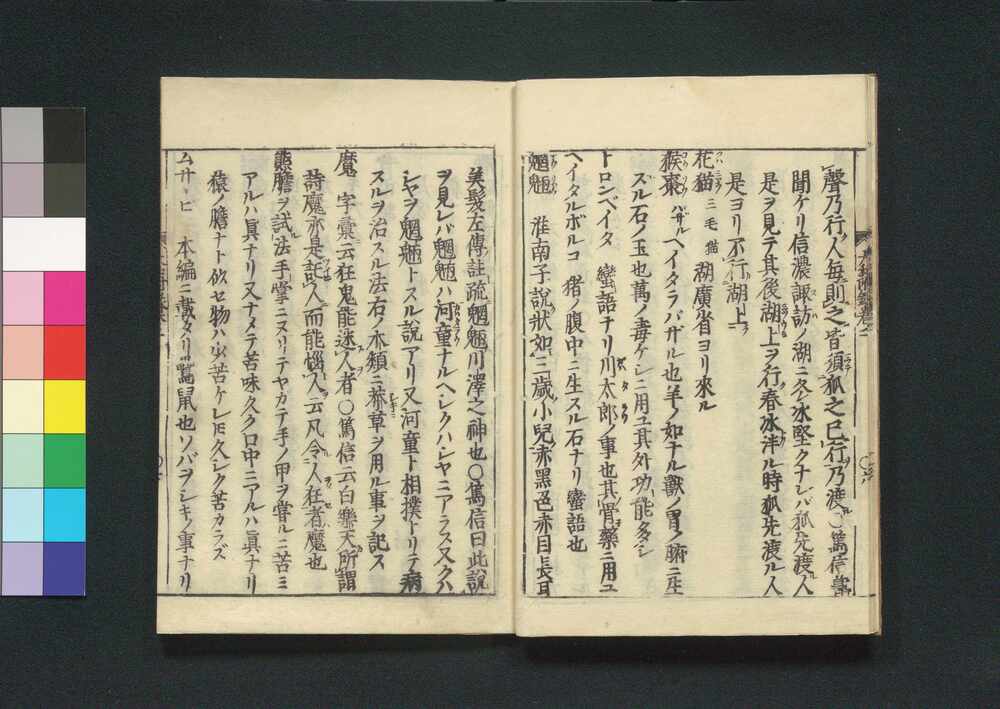 聲乃行人毎則之皆須狐之已行乃渡〇篤信嘗
聞ケリ信濃諏訪ノ湖ニ冬冰堅クナレバ狐先渡人
是ヲ見テ其後湖上ヲ行春冰泮ル時狐先渡ル人
是ヨリ不行湖上
花猫 三毛猫 湖廣省ヨリ來ル
猴棗 ハザル ヘイタラバザル也羊ノ如ナル獸ノ胃ノ腑ニ生
ズル石ノ玉也萬ノ毒ケシニ用ユ其外功能多シ
トロンベイタ 蠻語ナリ川太郎ノ事也其骨藥ニ用ユ
ヘイタルボルコ 猪ノ腹中ニ生スル石ナリ蠻語也
魍魎 淮南子說狀如三歲小兒赤黑色赤目長耳
美髮左傳註疏魍魎川澤之神也〇篤信曰此說
ヲ見レバ魍魎ハ河童ナルヘシクハシヤニアラス又クハ
シヤヲ魍魎トスル說アリ又河童ト相撲トリテ病
スルヲ治スル法右ノ木類ニ莽草ヲ用ル事ヲ記ス
魔 字彙云狂鬼能迷人者〇篤信云白樂天所謂
詩魔亦是託人而能惱人云凡令人狂者魔也
熊膽ヲ試法手掌ニヌリテヤカテ手ノ甲ヲ嘗ルニ苦ミ
アルハ眞ナリ又ナメテ苦味久ク口中ニアルハ眞ナリ
猿ノ膽ナト似セ物ハ少苦ケレ𪜈久シク苦カラズ
ムサヽヒ 本編ニ載タリ鼯鼠也ソバヲシキノ事ナリ